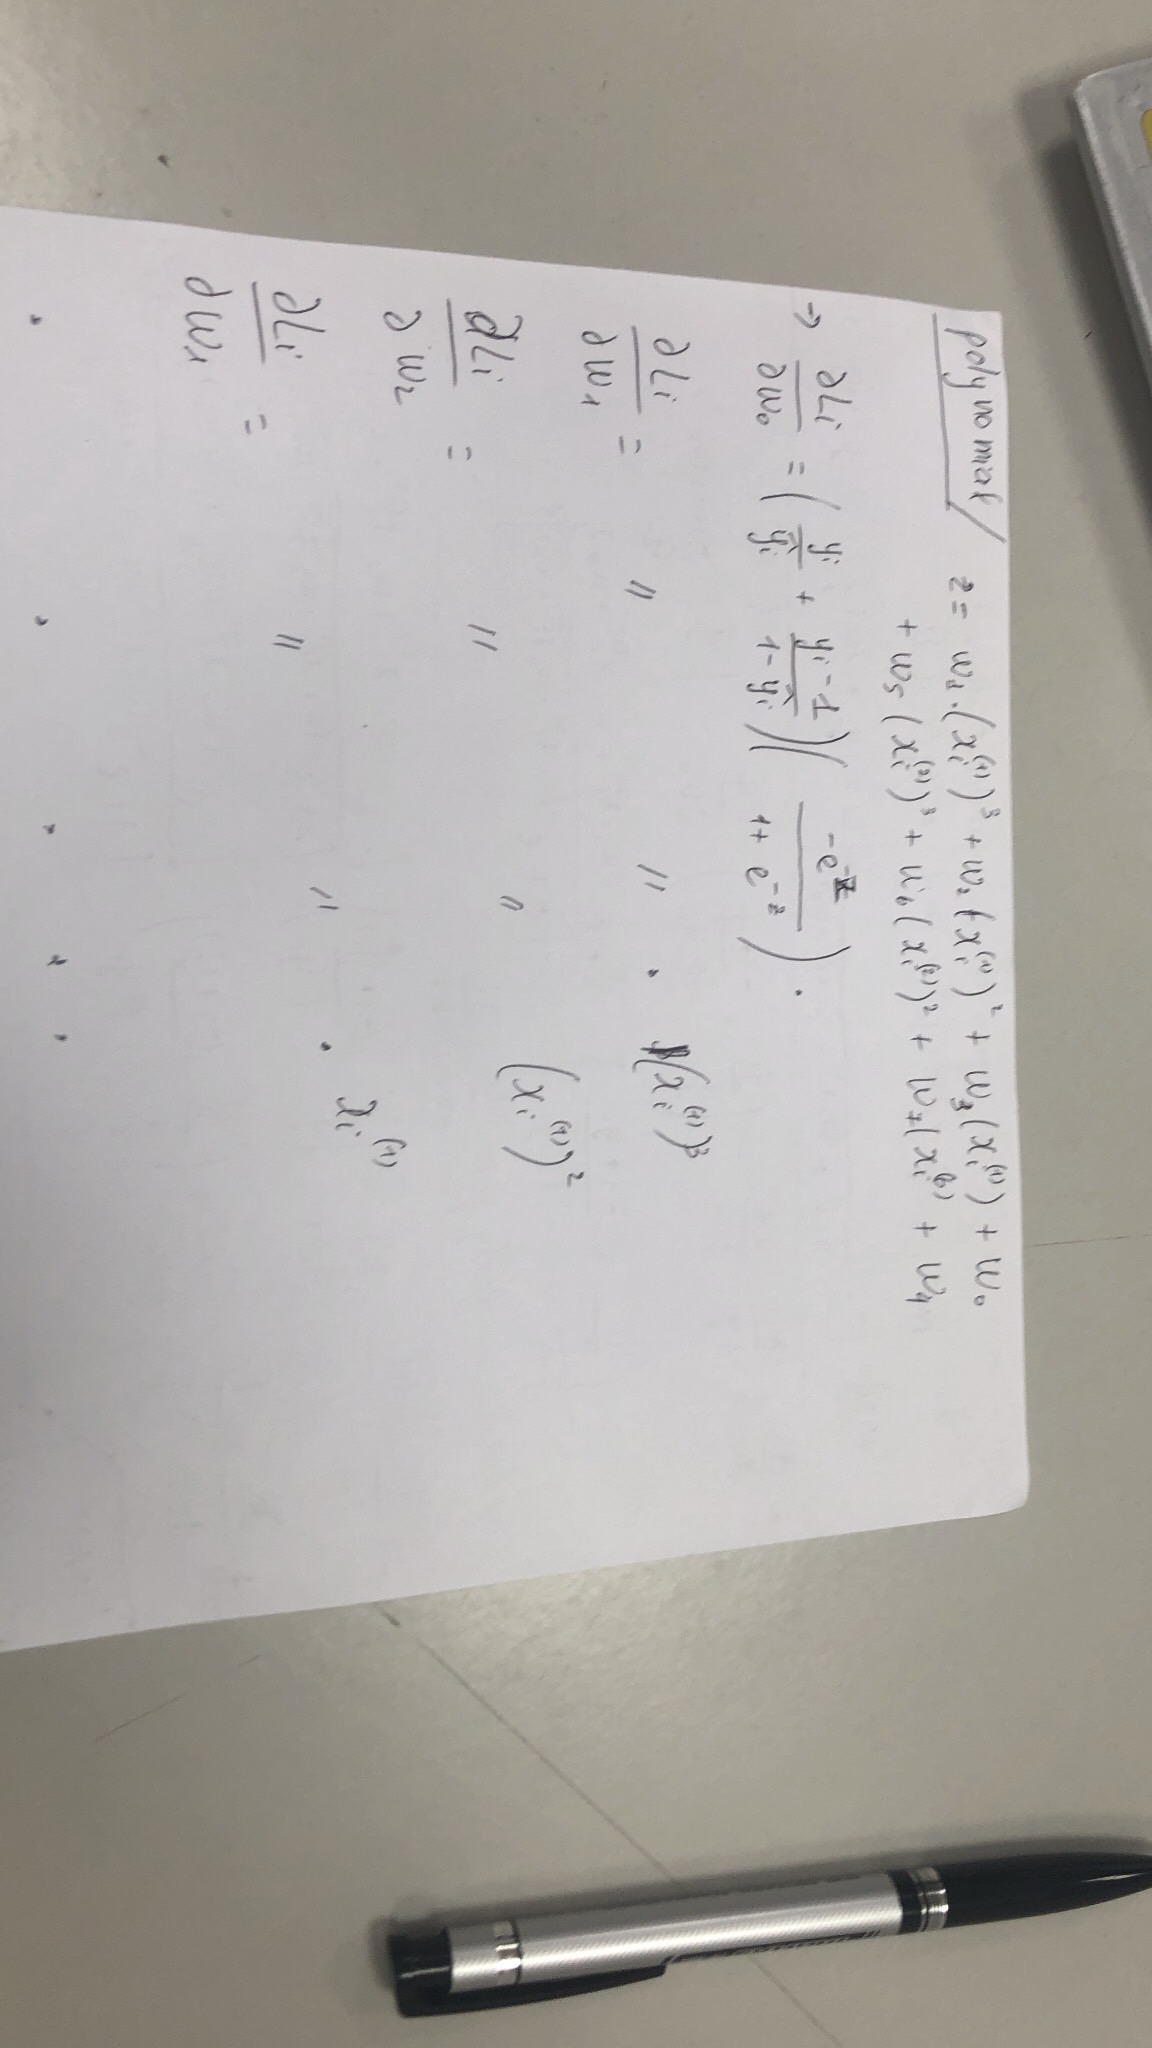 polynomial
z = w₁.(xᵢ⁽¹⁾)³ + w₂(xᵢ⁽¹⁾)² + w₃(xᵢ⁽¹⁾) + w₀
+ w₅(xᵢ⁽²⁾)³ + w₆(xᵢ⁽²⁾)² + w₇(xᵢ⁽²⁾ + w₄
→ ∂Li/∂w₀ = (yᵢ/ŷᵢ + yᵢ-1/1-ŷᵢ)(-e⁻ᶻ/1+e⁻ᶻ) .
∂Li/∂w₁ = " " . (xᵢ⁽¹⁾)³
∂Li/∂w₂ = " " (xᵢ⁽¹⁾)²
∂Li/∂w₁ = " " . xᵢ⁽¹⁾